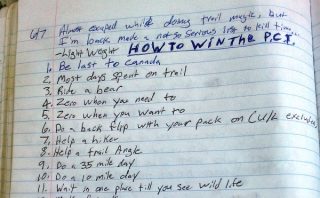 6/7 Almost escaped while doing trail magic, but
I'm back, made a not so serious list to kill time...
-Light Weight HOW TO WIN THE P.C.T.
1. Be last to Canada
2. Most days spent on trail
3. Ride a bear
4. Zero when you need to
5. Zero when you want to
6. Do a back flip with your pack on (U/L excluded
7. Help a hiker
8. Help a trail Angle
9. Do a 35 mile day
10. Do a 10 mile day
11. Wait in one place till you see wild life